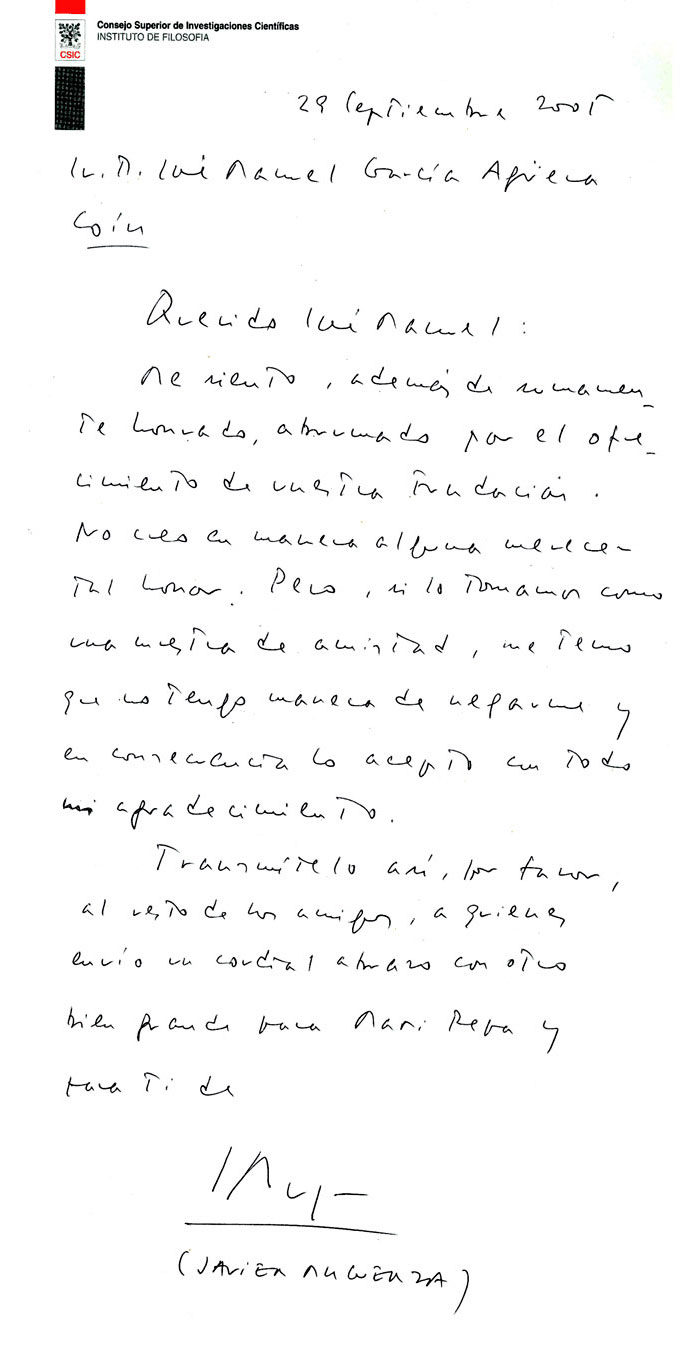 Consejo Superior de Investigaciones Científicas
INSTITUTO DE FILOSOFIA
CSIC
29 Septiembre 2005
Sr. D. José Manuel García Agüera
Coín
Querido José Manuel:
Me siento, además de sumamen_
te honrado, abrumado por el ofre_
cimiento de vuestra Fundación.
No creo en manera alguna merecer
tal honor. Pero, si lo tomamos como
una muestra de amistad, me temo
que no tengo manera de negarme y
en consecuencia lo acepto con todo
mi agradecimiento.
Transmítelo así, por favor,
al resto de los amigos, a quienes
envío un cordial abrazo con otro
bien grande para Mari Pepa y
para ti de
(JAVIER MUGUERZA)